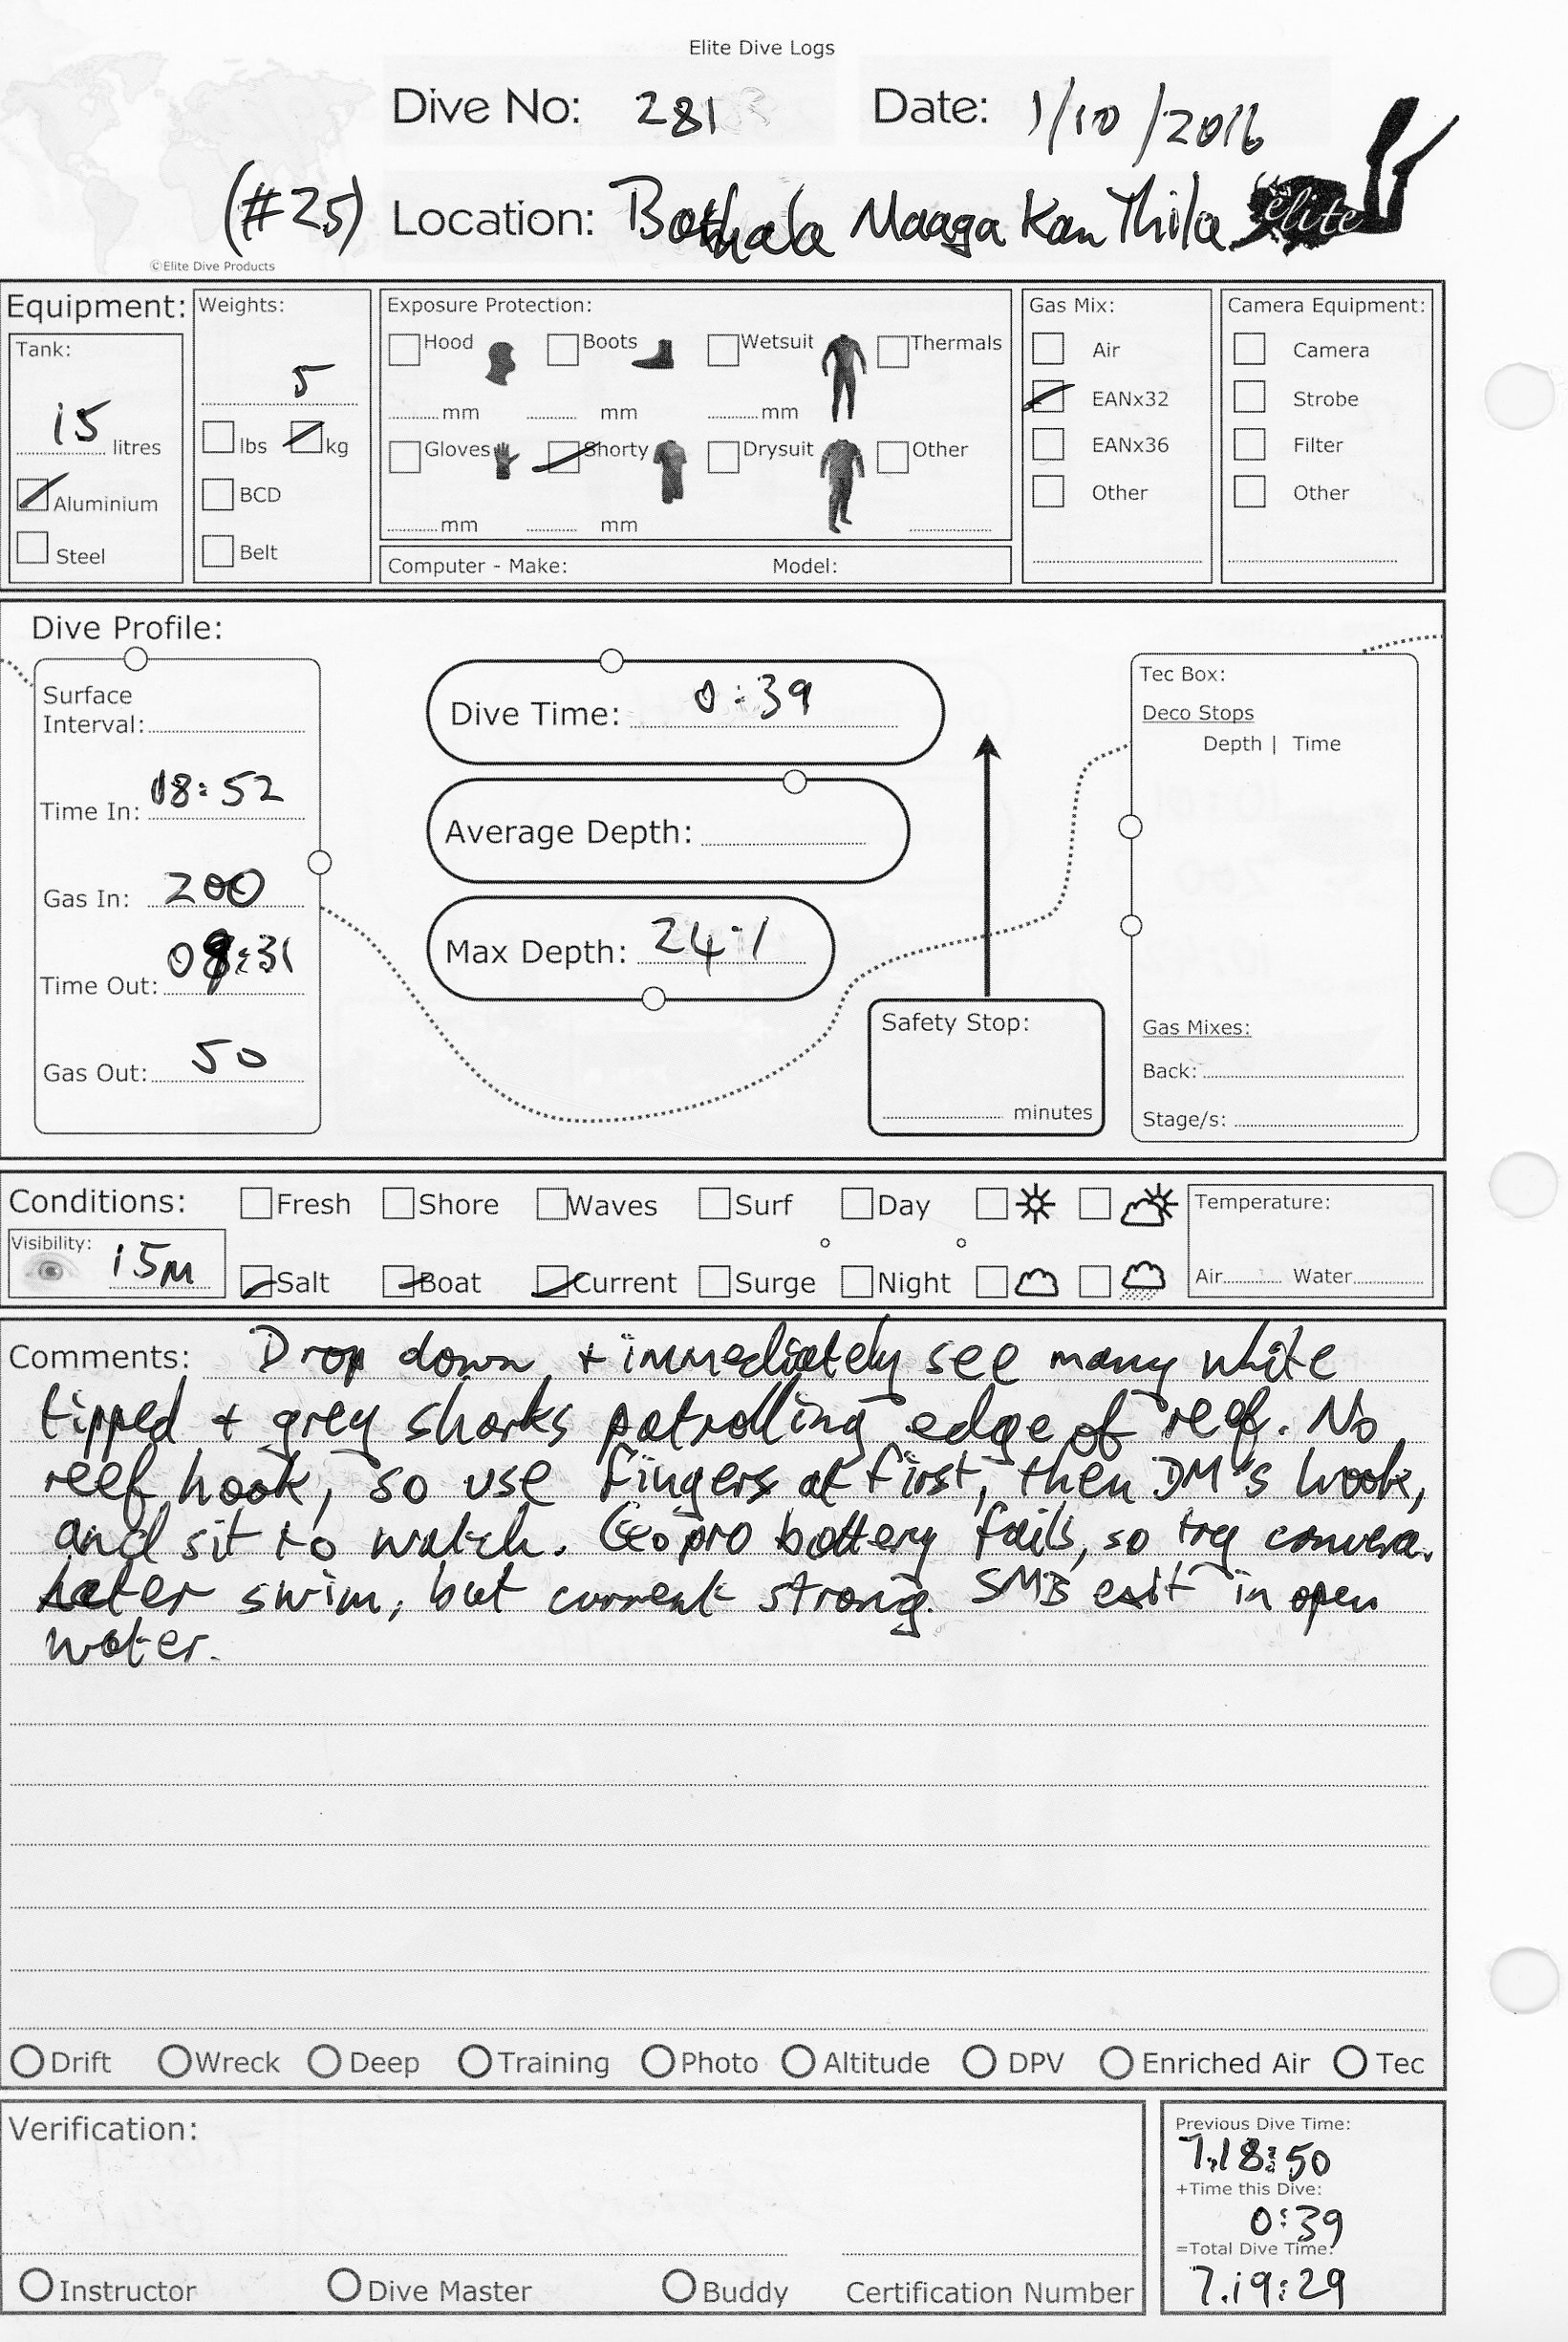 Elite Dive Logs
Dive No: 281 Date: 1/10/2016
(#25) Location: Bathala Maaga Kan Thila elite
©Elite Dive Products
Equipment: Weights: Exposure Protection: Gas Mix: Camera Equipment:
Tank: Hood Boots Wetsuit Thermals Air Camera
5 mm mm mm EANx32 Strobe
15 litres lbs kg Gloves Shorty Drysuit Other EANx36 Filter
Aluminium BCD Other Other
mm mm
Steel Belt Computer - Make: Model:
Dive Profile:
Surface
Interval:
Time In: 08:52
Gas In: 200
Time Out: 09:31
Gas Out: 50
Dive Time: 0:39
Average Depth:
Max Depth: 24.1
Safety Stop:
minutes
Tec Box:
Deco Stops
Depth | Time
Gas Mixes:
Back:
Stage/s:
Conditions: Fresh Shore Waves Surf Day Temperature:
Visibility: 15m Salt Boat Current Surge Night Air Water
Comments: Drop down + immediately see many white
tipped + grey sharks patrolling edge of reef. No
reef hook, so use fingers at first, then DM's hook,
and sit to watch. Gopro battery fails, so try camera.
Later swim, but current strong. SMB exit in open
water.
Drift Wreck Deep Training Photo Altitude DPV Enriched Air Tec
Verification:
Instructor Dive Master Buddy Certification Number
Previous Dive Time:
7.18:50
+Time this Dive:
0:39
=Total Dive Time:
7.19:29